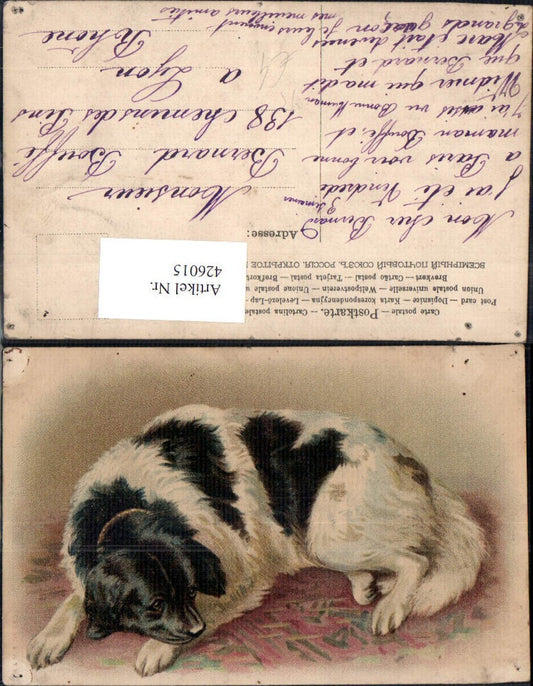 Carte postale — Cartolina
Postkarte.
Post card — Dopisnice — Karta korespondencyjna — Levelező-Lap
Union postale universelle — Weltpostverein — Unione postale
Brevkort — Cartão postal — Tarjeta postal — Brefkort
ВСЕМІРНЫЙ ПОЧТОВЫЙ СОЮЗЪ. РОССІЯ. ОТКРЫТОЕ
Adresse:
Artikel Nr.
426015
Mon cher Bernard
J'ai été Vendredi
a Paris voir bonne
maman Bouffé et
J'ai vu Bonne Maman
Widmer qui m'a dit
que Bernard et
Marc était devenus
grands garçon je leurs envoient
mes meilleures amitiés
Monsieur
Bernard Bouffé
138 Chemins des Pins
a Lyon
Rhône